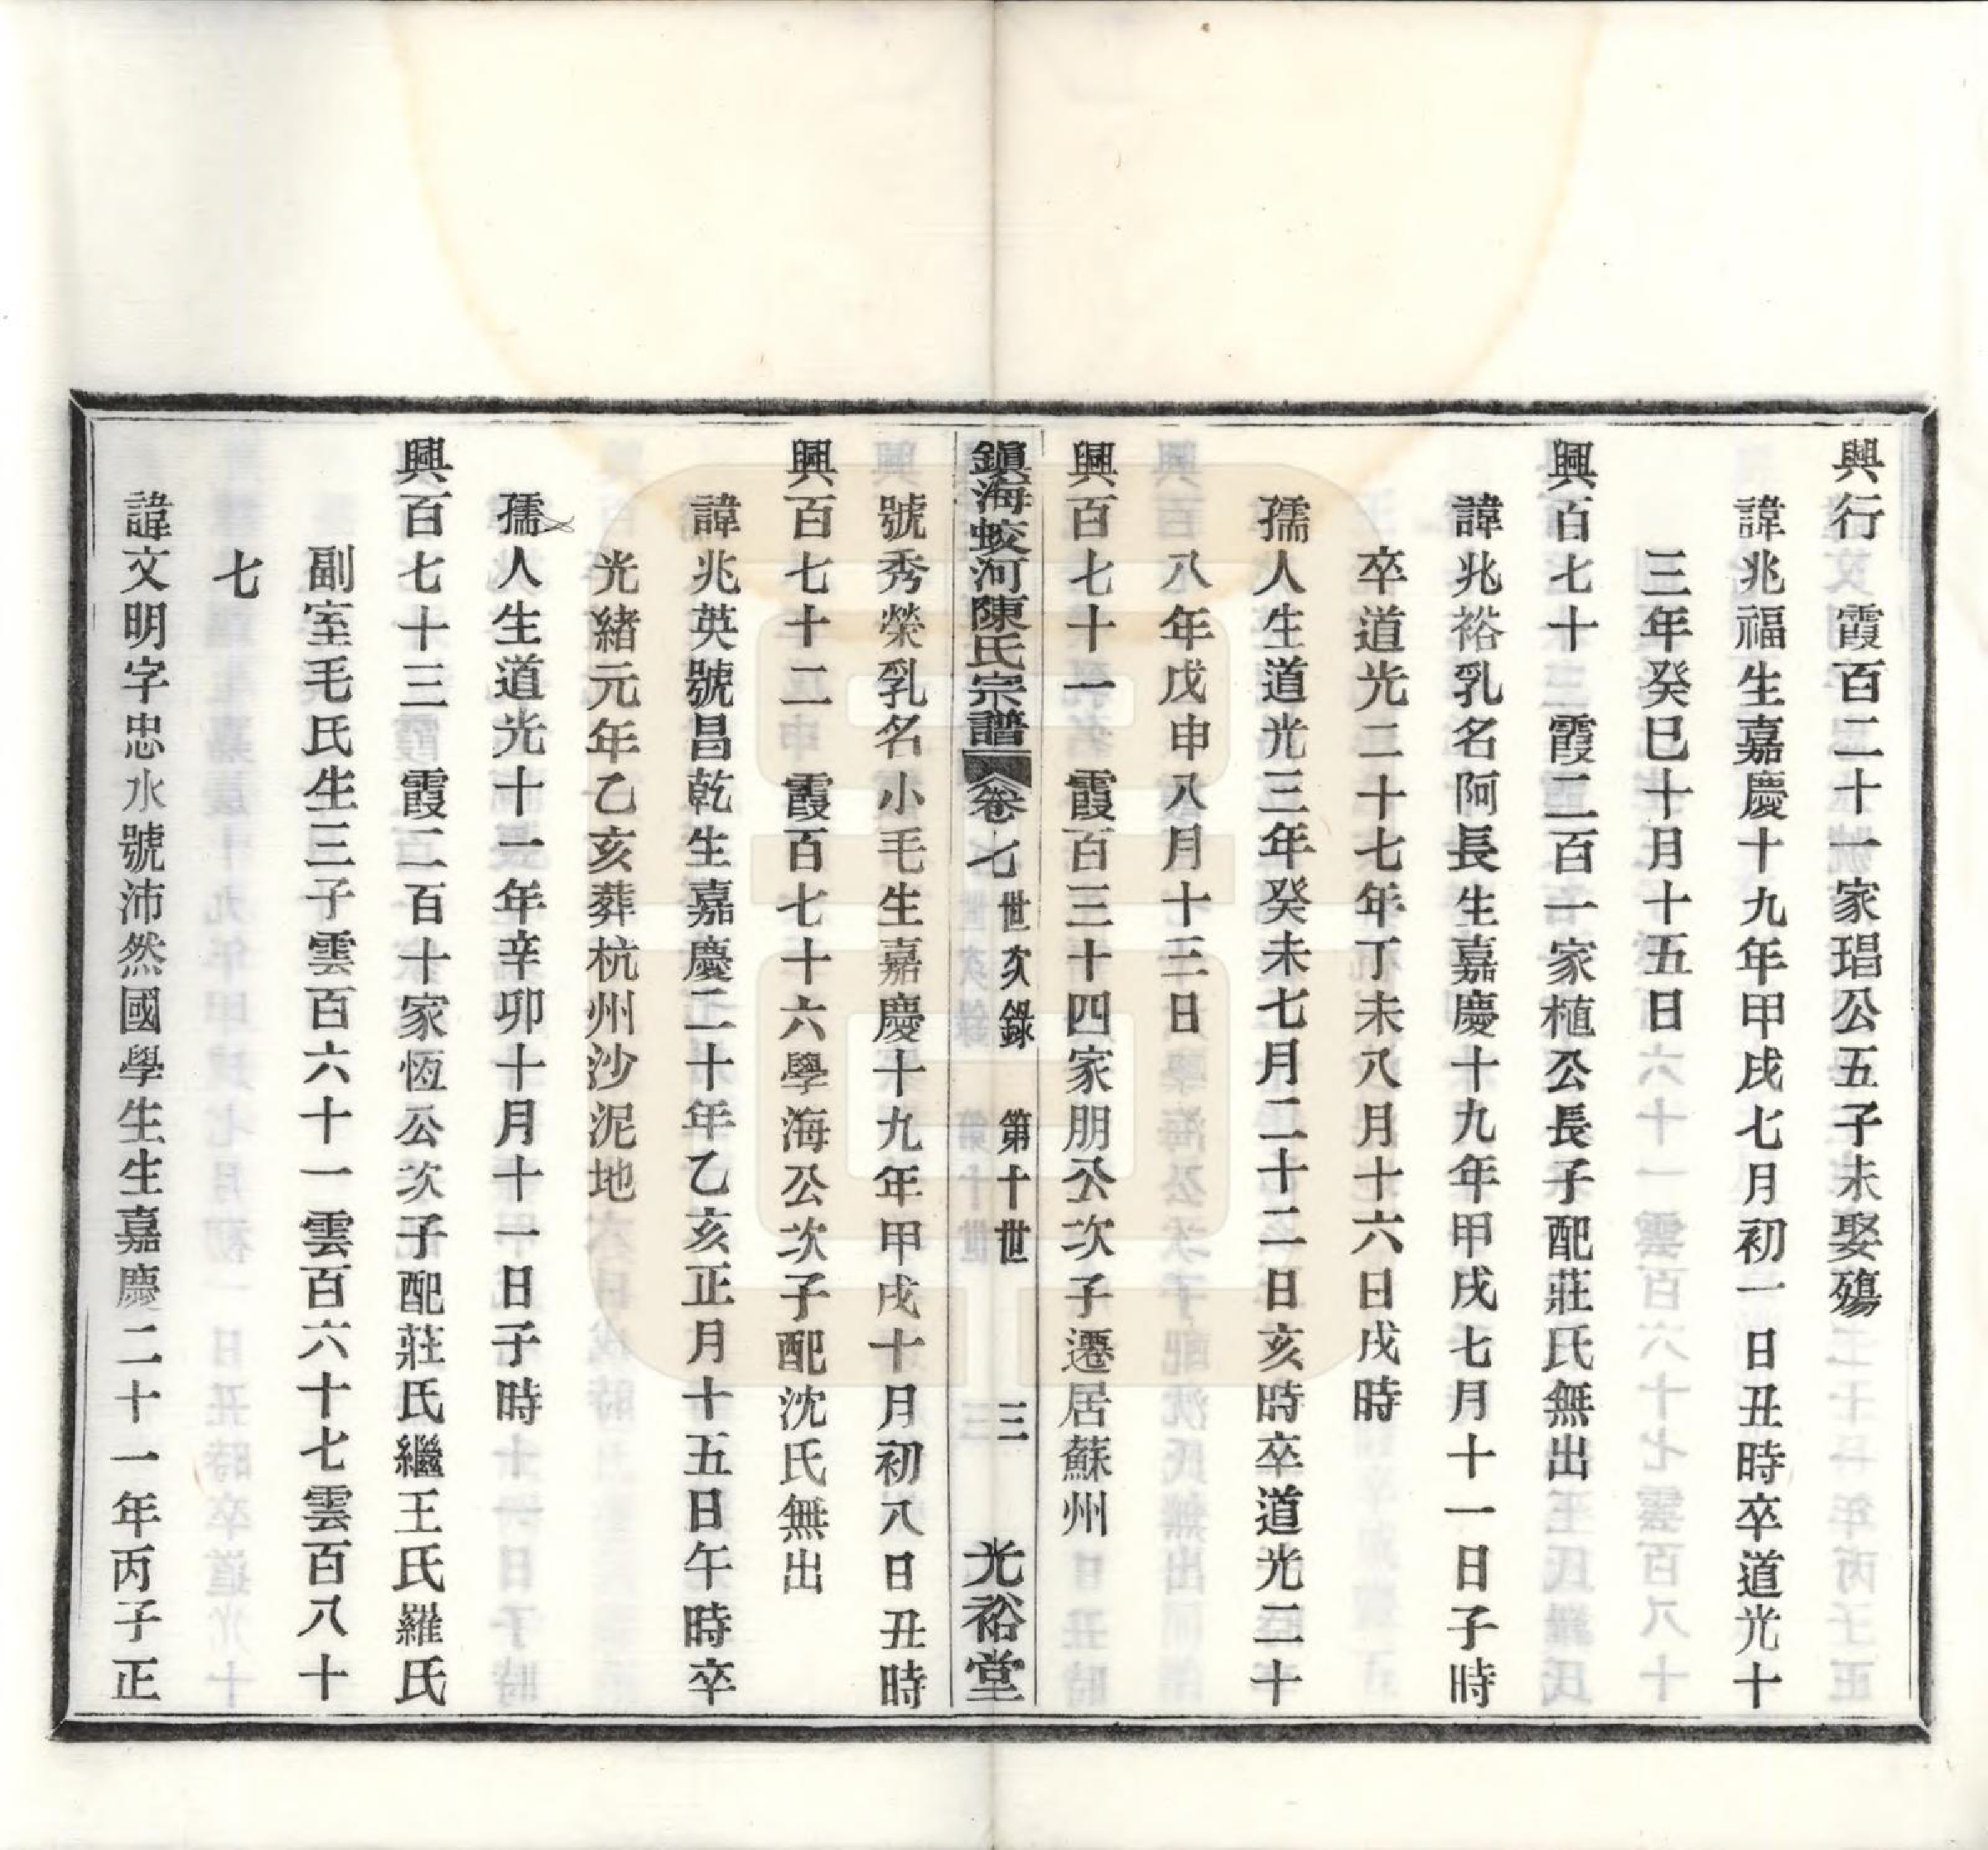 興行　霞百二十一家琩公五子未娶殤
諱兆福生嘉慶十九年甲戌七月初一日丑時卒道光十
三年癸巳十月十五日
興百七十　霞二百一家植公長子配莊氏無出
諱兆裕乳名阿長生嘉慶十九年甲戌七月十一日子時
卒道光二十七年丁未八月十六日戌時
孺人生道光三年癸未七月二十二日亥時卒道光二十
八年戊申八月十三日
興百七十一　霞百三十四家朋公次子遷居蘇州
鎮海蛟河陳氏宗譜　卷七　世次錄　第十世　三　光裕堂
號秀榮乳名小毛生嘉慶十九年甲戌十月初八日丑時
興百七十二　霞百七十六學海公次子配沈氏無出
諱兆英號昌乾生嘉慶二十年乙亥正月十五日午時卒
光緒元年乙亥葬杭州沙泥地
孺人生道光十一年辛卯十月十一日子時
興百七十三　霞二百十家恆公次子配莊氏繼王氏羅氏
副室毛氏生三子雲百六十一雲百六十七雲百八十
七
諱文明字忠水號沛然國學生生嘉慶二十一年丙子正